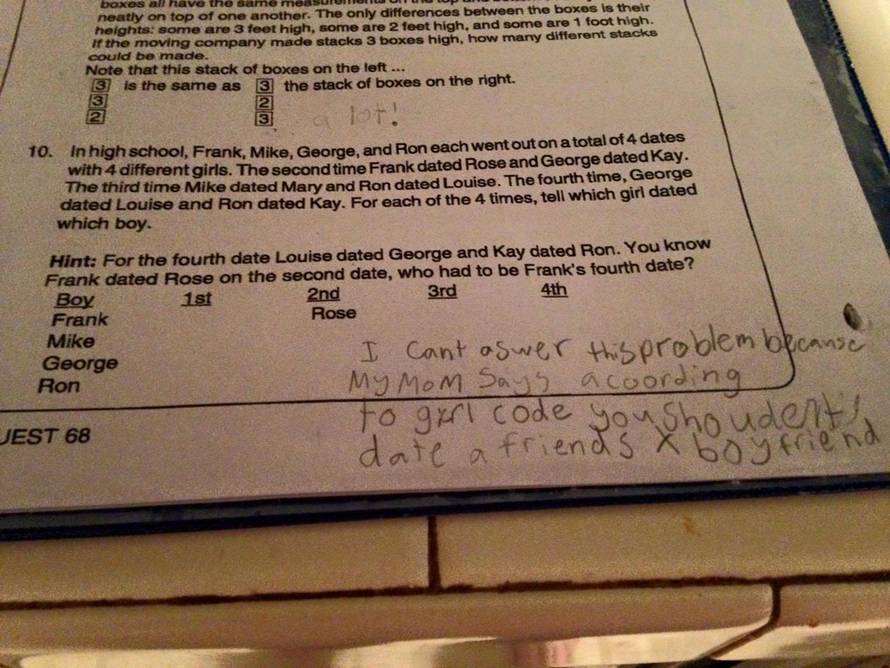 boxes all have the same measurements on the top and
neatly on top of one another. The only differences between the boxes is their
heights: some are 3 feet high, some are 2 feet high, and some are 1 foot high.
If the moving company made stacks 3 boxes high, how many different stacks
could be made.
Note that this stack of boxes on the left ...
3 is the same as 3 the stack of boxes on the right.
3 2
2 3 a lot!
10. In high school, Frank, Mike, George, and Ron each went out on a total of 4 dates
with 4 different girls. The second time Frank dated Rose and George dated Kay.
The third time Mike dated Mary and Ron dated Louise. The fourth time, George
dated Louise and Ron dated Kay. For each of the 4 times, tell which girl dated
which boy.
Hint: For the fourth date Louise dated George and Kay dated Ron. You know
Frank dated Rose on the second date, who had to be Frank's fourth date?
Boy 1st 2nd 3rd 4th
Frank Rose
Mike
George
Ron
I cant aswer this problem because
My MoM Says acoording
to girl code you shoudent
date a friends X boyfriend
UEST 68